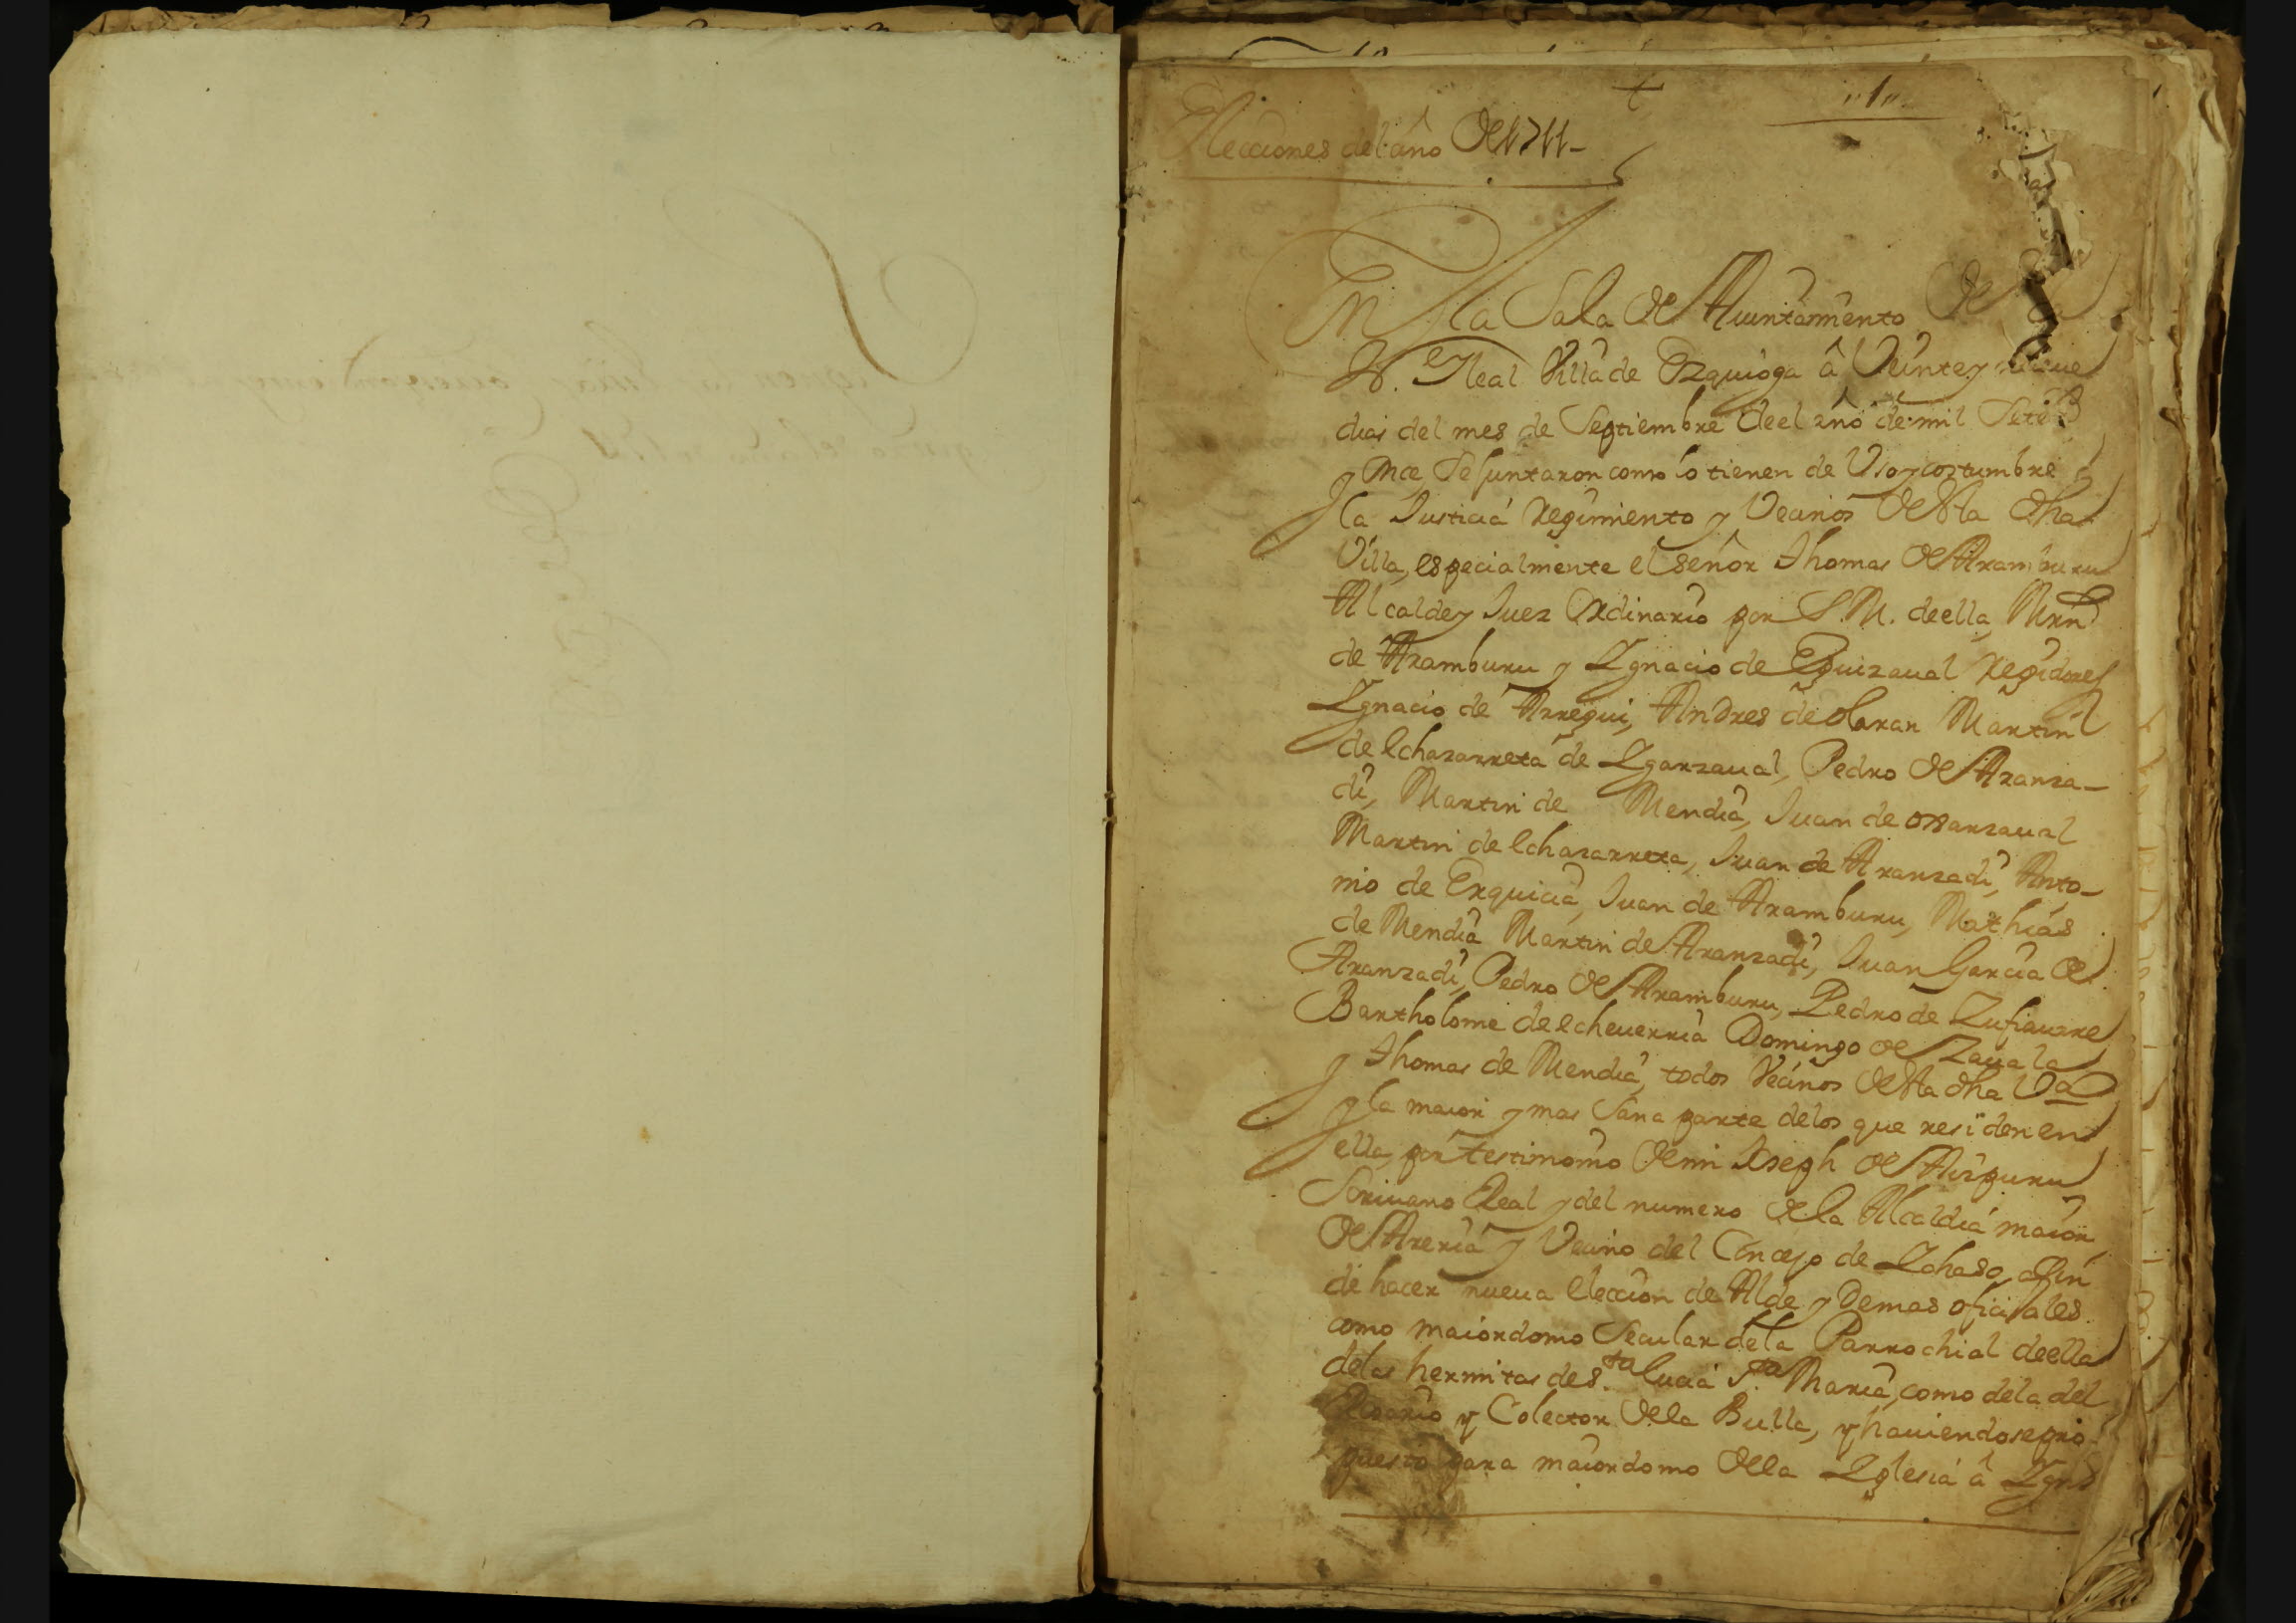 +
1
Elecciones del año de 1711-
En la Sala de Aiuntamiento de la
N. Real Villa de Ezquioga â Veinte y nueue
dias del mes de Septiembre de el año de mil Setes
y once, Se Juntaron como lo tienen de Vso y costumbre
la Justicia Regimiento y Vecinos de sta dha
Villa, especialmente el señor Thomas de Aramburu
Alcalde y Juez Ordinario por S. M. de ella, Mrn
de Aramburu y Ygnacio de Eguizaual Regidores
Ygnacio de Arregui, Andres de olaran Martin
de echazarreta de Ygarzaual, Pedro de Aranza-
di, Martin de Mendia, Juan de orzarzaual
Martin de echazarreta, Juan de Aranzadi, Anto-
nio de Ezquicia, Juan de Aramburu, Mathias
de Mendia Martin de Aranzadi, Juan Garcia de
Aranzadi, Pedro de Aramburu, Pedro de Zufiaurre
Bartholome de echeuerria Domingo de Zauala
y Thomas de Mendia, todos Vecinos de sta dha Va
y la maior y mas Sana parte delos que residen en
ella, por testimonio de mi Joseph de Aizpuru
Scriuano Real y del numero de la Alcaldia maior
de Areria y Vecino del Concejo de Ychaso, afin
de hacer nueua eleccion de Alde y Demas oficiales
como maiordomo Secular dela Parrochial deella
delas hermitas de S.ta Lucia S.ta Maria, como dela del
Rosario y Colector dela Bulla, y hauiendose pro-
puesto para maiordomo dela Yglesia â Ygno